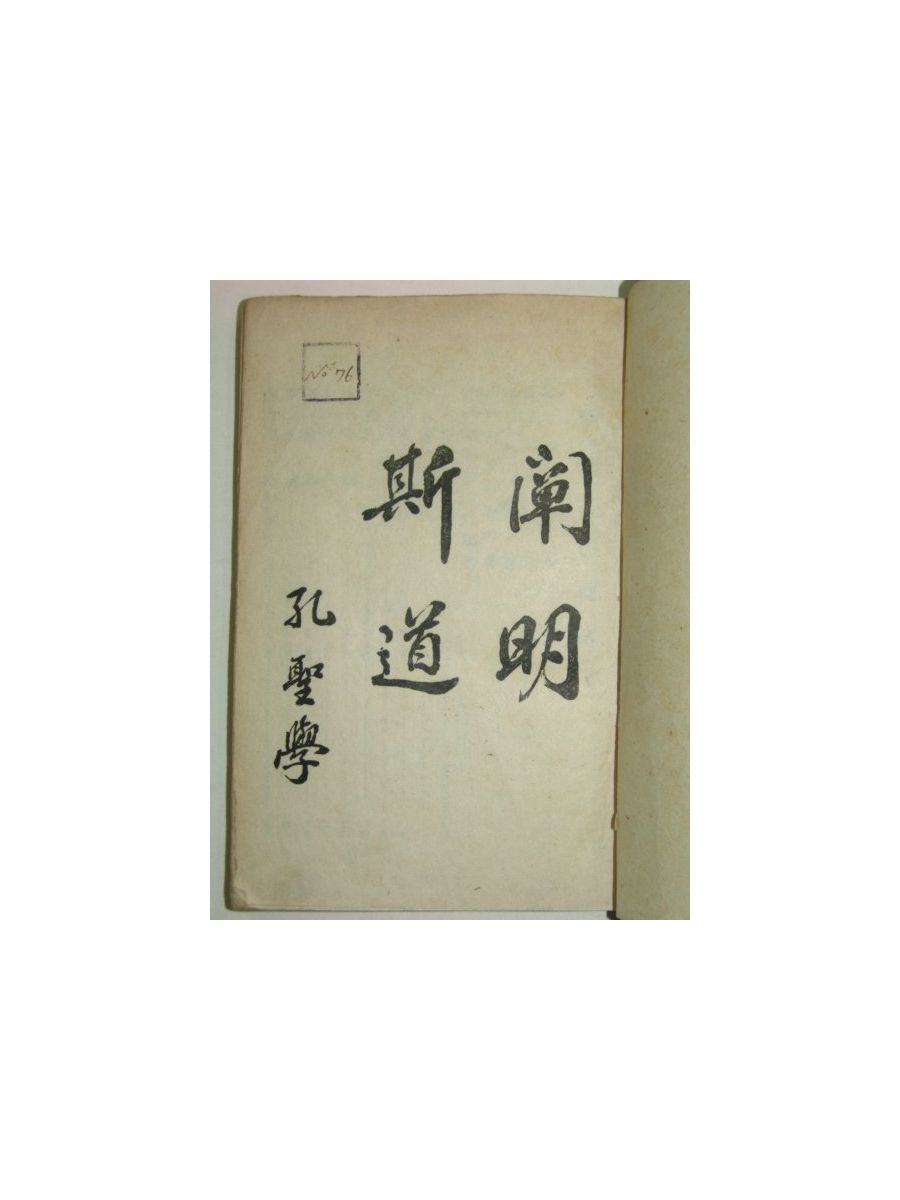 闡明
斯道
孔聖學
No 76